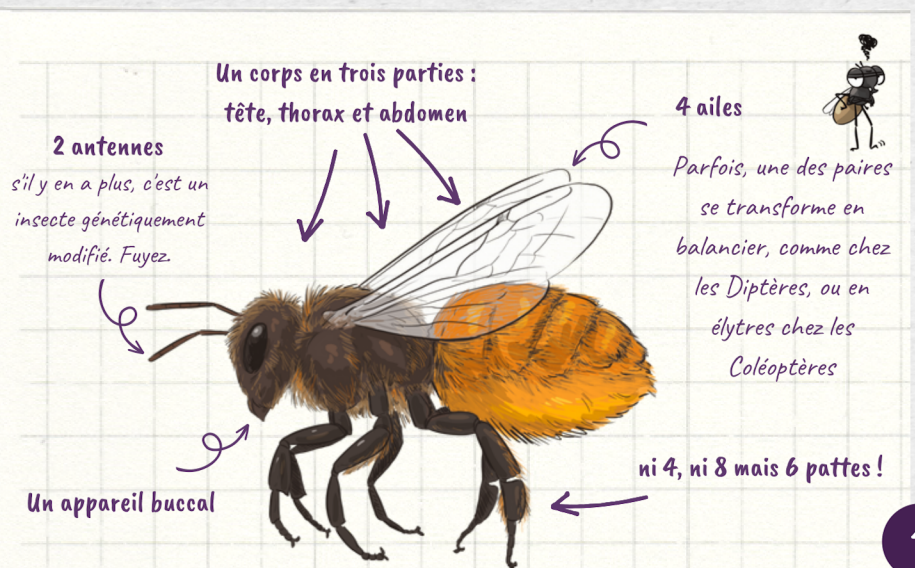 Un corps en trois parties :
tête, thorax et abdomen
2 antennes
s'il y en a plus, c'est un
insecte génétiquement
modifié. Fuyez.
4 ailes
Parfois, une des paires
se transforme en
balancier, comme chez
les Diptères, ou en
élytres chez les
Coléoptères
Un appareil buccal
ni 4, ni 8 mais 6 pattes !